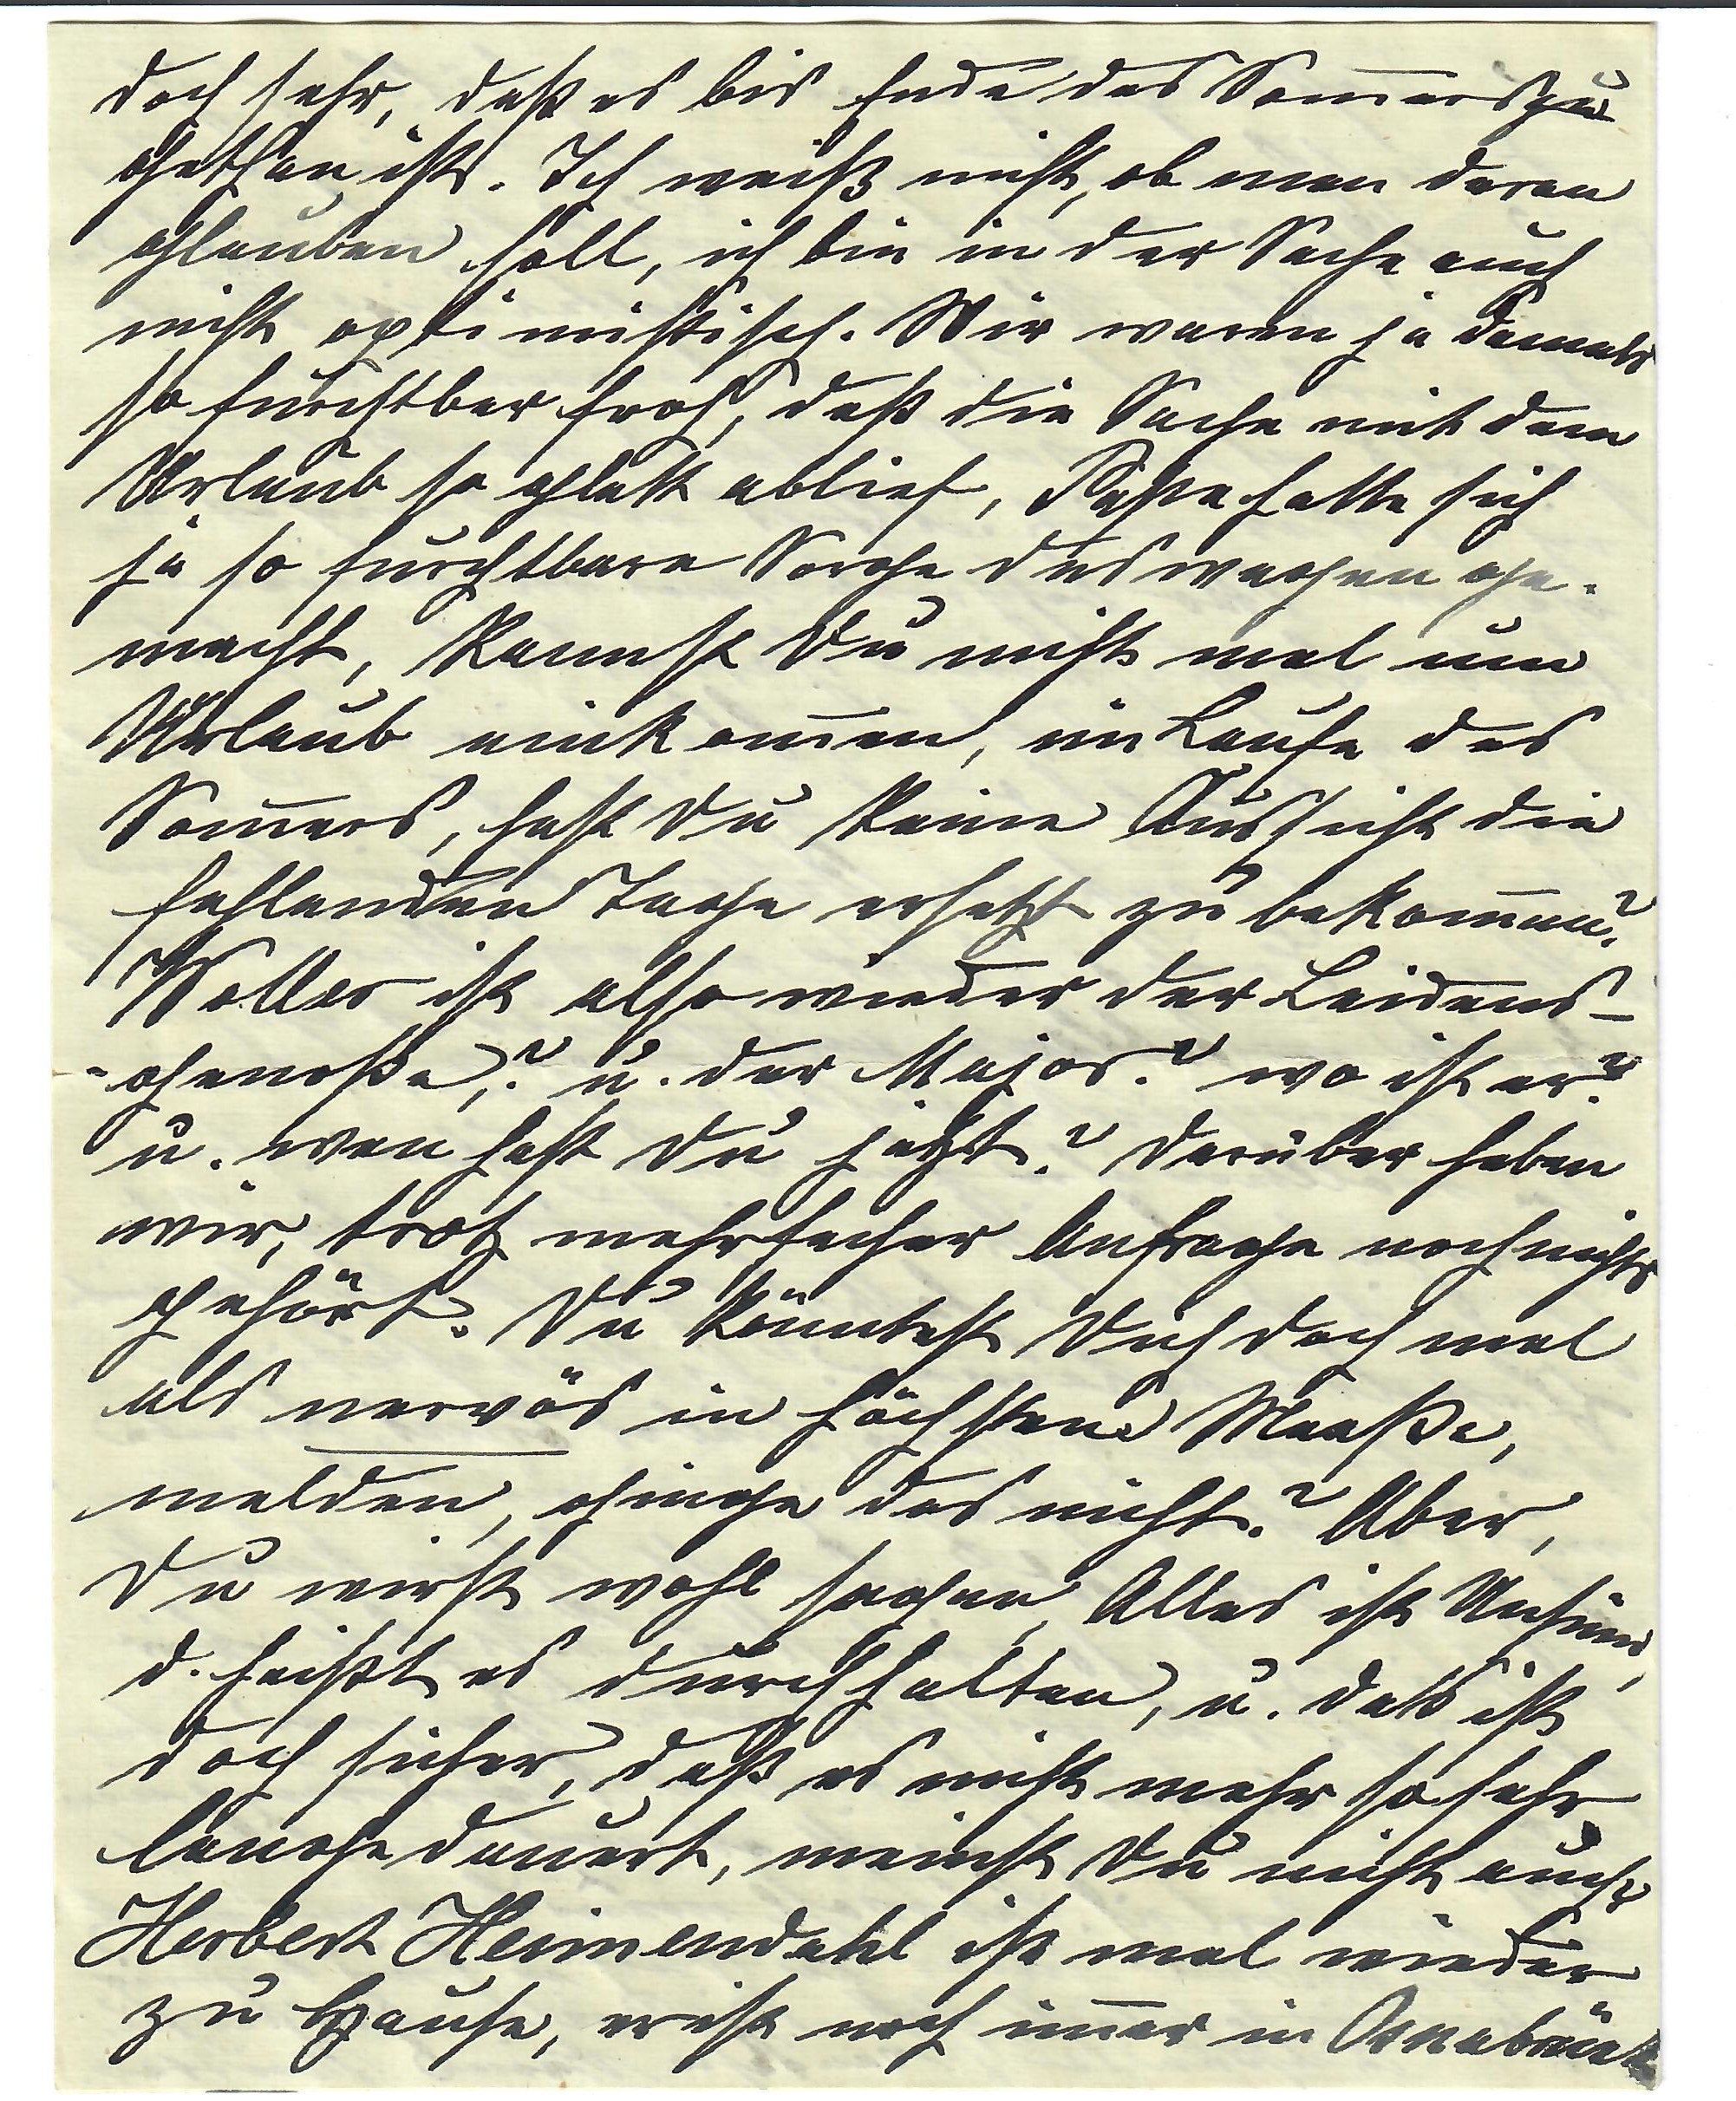 doch sehr, daß es bis Ende des Sommers zu
gethan ist. Ich weiß nicht, ob man daran
glauben soll, ich bin in der Sache auch
nicht optimistisch. Wir waren ja damals
so furchtbar froh, daß die Sache mit dem
Urlaub so glatt ablief, Papa hatte sich
ja so furchtbare Sorge deswegen ge-
macht, Kannst Du nicht mal um
Urlaub einkom̅en, im Laufe des
Som̅ers, hast Du keine Aussicht die
fehlenden Tage ersetzt zu bekom̅en?
Wolter ist also wieder der Leidens-
-genoße,? u. der Major? wo ist er?
u. wen hast Du jetzt? darüber haben
wir, trotz mehrfacher Anfrage noch nichts
gehört. Du könntest Dich doch mal
als nervös in höchstem Maaße,
melden, ginge das nicht? Aber,
Du wirst wohl sagen, Alles ist Unsinn,
d. heißt es durchhalten, u. das ist
doch sicher, daß es nicht mehr so sehr
lange dauert, meinst Du nicht auch?
Herbert Heimendahl ist mal wieder
zu Hause, er ist noch im̅er in Osnabrück